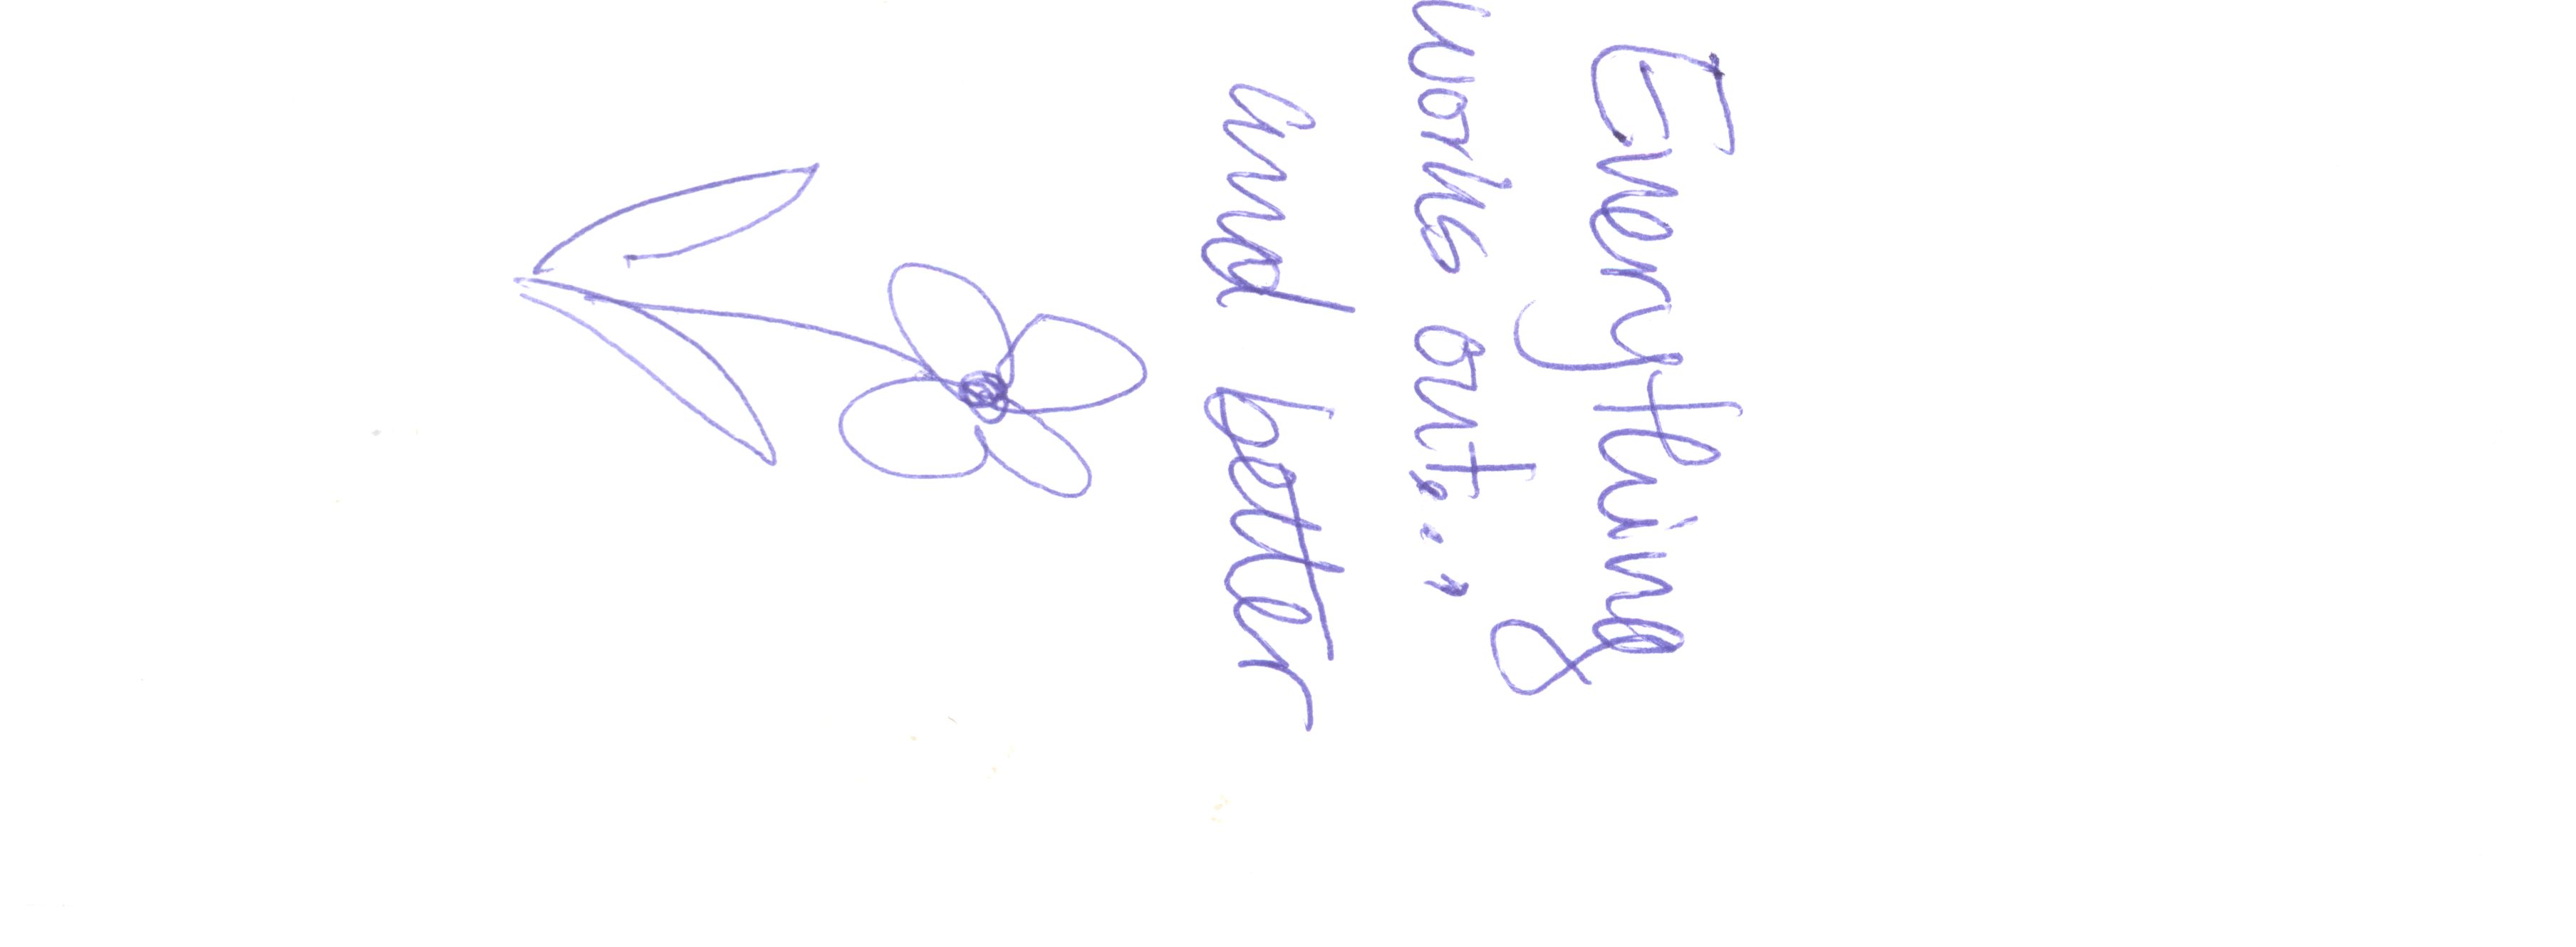 Everything
works out...
and better